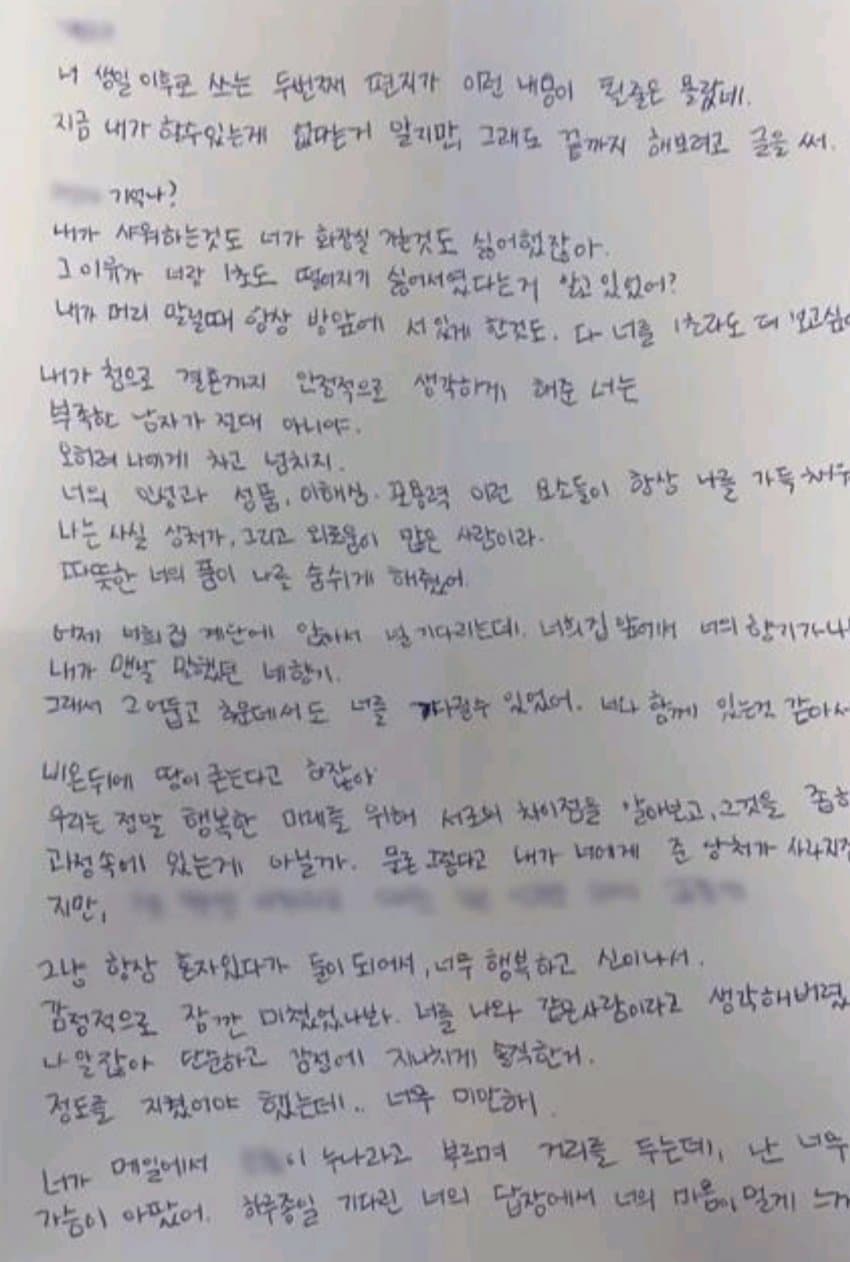 너 생일 이후로 쓰는 두번째 편지가 이런 내용이 될줄은 몰랐네.
지금 내가 할수있는게 없다는거 알지만, 그래도 끝까지 해보려고 글을 써.
기억나?
내가 샤워하는것도 너가 화장실 가는것도 싫어했잖아.
그 이유가 너랑 1초도 떨어지기 싫어서였다는거 알고있었어?
내가 머리 말릴때 항상 방앞에 서있게 한것도. 다 너를 1초라도 더 보고싶어
내가 첨으로 결혼까지 안정적으로 생각하게 해준 너는
부족한 남자가 절대 아니야.
오히려 나에게 차고 넘치지.
너의 인성과 성품, 이해심. 포용력 이런 요소들이 항상 나를 가득 채워
나는 사실 상처가, 그리고 외로움이 많은 사람이라.
따뜻한 너의 품이 나를 숨쉬게 해줬어.
어제 너희집 계단에 앉아서 널 기다리는데. 너희집 앞에서 너의 향기가 나
내가 맨날 말했던 네향기.
그래서 그 어둡고 추운데서도 너를 기다릴수 있었어. 너와 함께 있는것 같아서
비온뒤에 땅이 굳는다고 하잖아
우리는 정말 행복한 미래를 위해 서로의 차이점을 알아보고, 그것을 좁히
과정속에 있는게 아닐까. 물론 그렇다고 내가 너에게 준 상처가 사라지진
지만,
그냥 항상 혼자있다가 둘이 되어서, 너무 행복하고 신이나서.
감정적으로 잠깐 미쳤었나봐. 너를 나와 같은사람이라고 생각해버렸
나 알잖아 단순하고 감정에 지나치게 솔직한거.
정도를 지켰어야 했는데.. 너무 미안해.
너가 메일에서 이 누나라고 부르며 거리를 두는데, 난 너무
가슴이 아팠어. 하루종일 기다린 너의 답장에서 너의 마음이 멀게 느껴